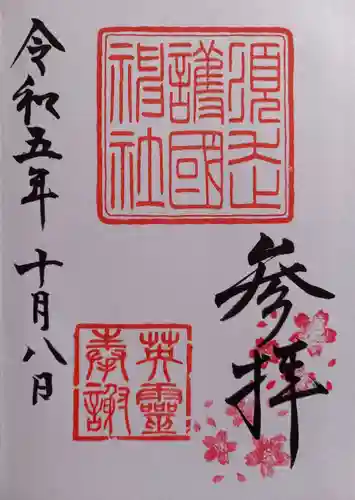 護國
神社
参拝
英靈
奉謝
令和五年十月八日